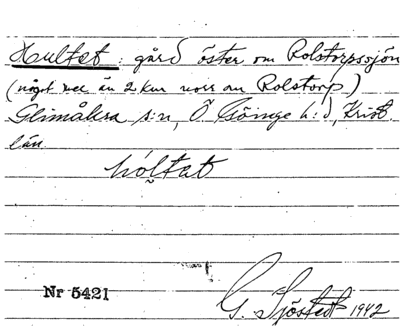 Hultet : gård öster om Rolstorpssjön
(något mer än 2 km norr om Rolstorp)
Glimåkra s:n, Ö Göinge h:d, Krist.
län.
hóltat
Nr 5421
G. Sjöstedt 1942